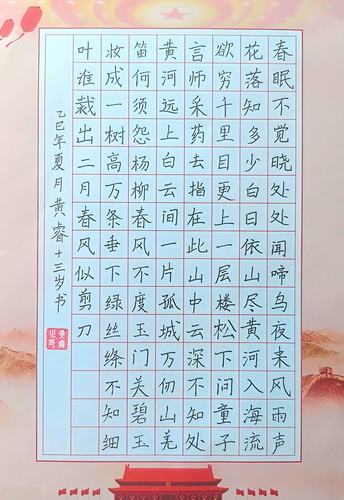 春眠不觉晓处处闻啼鸟夜来风雨声
花落知多少白日依山尽黄河入海流
欲穷千里目更上一层楼松下问童子
言师采药去指在此山中云深不知处
黄河远上白云间一片孤城万仞山羌
笛何须怨杨柳春风不度玉门关碧玉
妆成一树高万条垂下绿丝绦不知细
叶谁裁出二月春风似剪刀
乙巳年夏月黄睿十三岁书